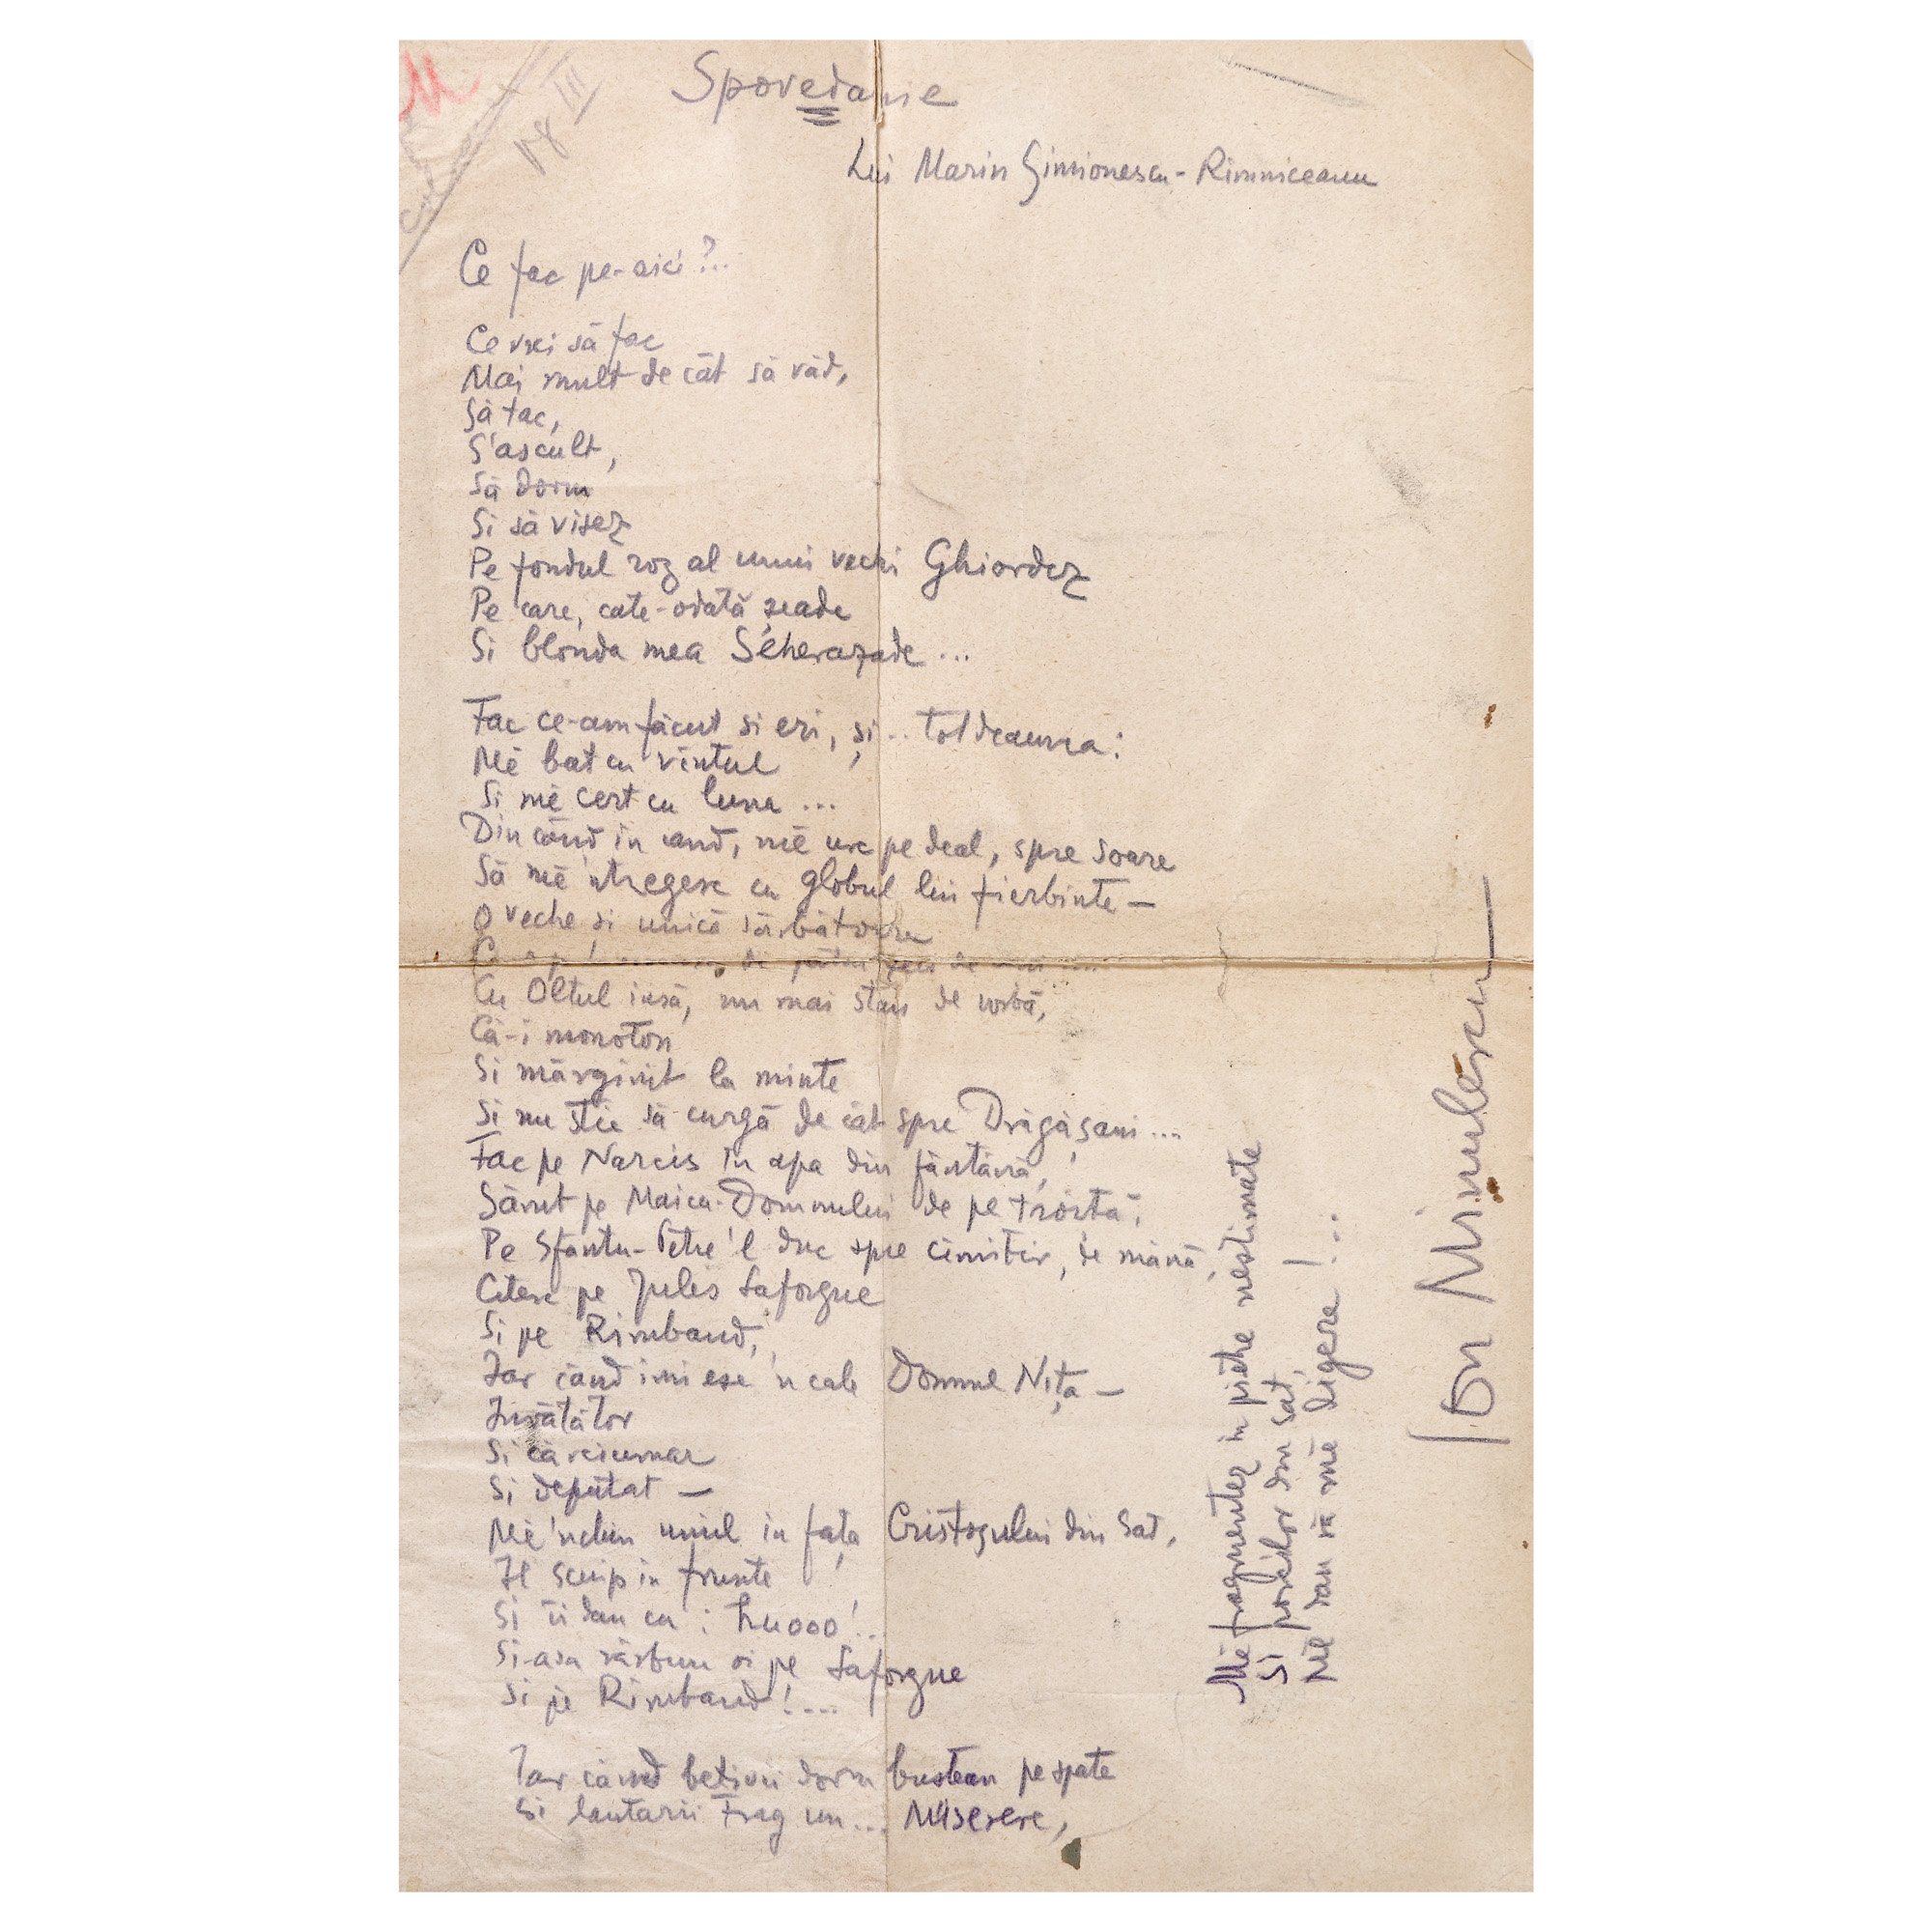 M
18 III
Spovedanie
Lui Marin Simionescu-Rimniceanu
Ce fac pe-aici?..
Ce vrei să fac
Mai mult de cât să văd,
Să tac,
S'ascult,
Să dorm
Si să visez
Pe fondul roz al unui vechi Ghiordez
Pe care, cate-odată șeade
Si blonda mea Séherazade...
Fac ce-am făcut si eri, și.. totdeauna:
Mĕ bat cu vîntul
Si mĕ cert cu luna...
Din când în cand, mĕ urc pe deal, spre soare
Să mĕ 'ntregesc cu globul lui fierbinte —
O veche și unică sărbătoare
de patru zeci de
Cu Oltul insă, nu mai stau de vorbă,
Că-i monoton
Si mărginit la minte
Si nu stie să curgă de cât spre Drăgășani...
Fac pe Narcis în apa din fântână,
Sărut pe Maica-Domnului de pe troită,
Pe Sfântu-Petre 'l duc spre cimitir, de mână,
Citesc pe Jules Laforgue
Si pe Rimbaud,
Iar când imi ese 'n cale Domnul Nița —
Invătător
Si cârciumar
Si deputat —
Mĕ 'nclin umil in fața Cristosului din sat,
Il scuip in frunte
Si ii dau cu: huooo!..
Si-asa răsbun si pe Laforgue
Si pe Rimbaud!...
Iar când betivii dorm bustean pe spate
Si lautarii trag un... Miserere,
Mĕ fragmentez in pietre nestimate
Si porcilor din sat,
Mĕ dau să mĕ digere!...
Ion Minulescu